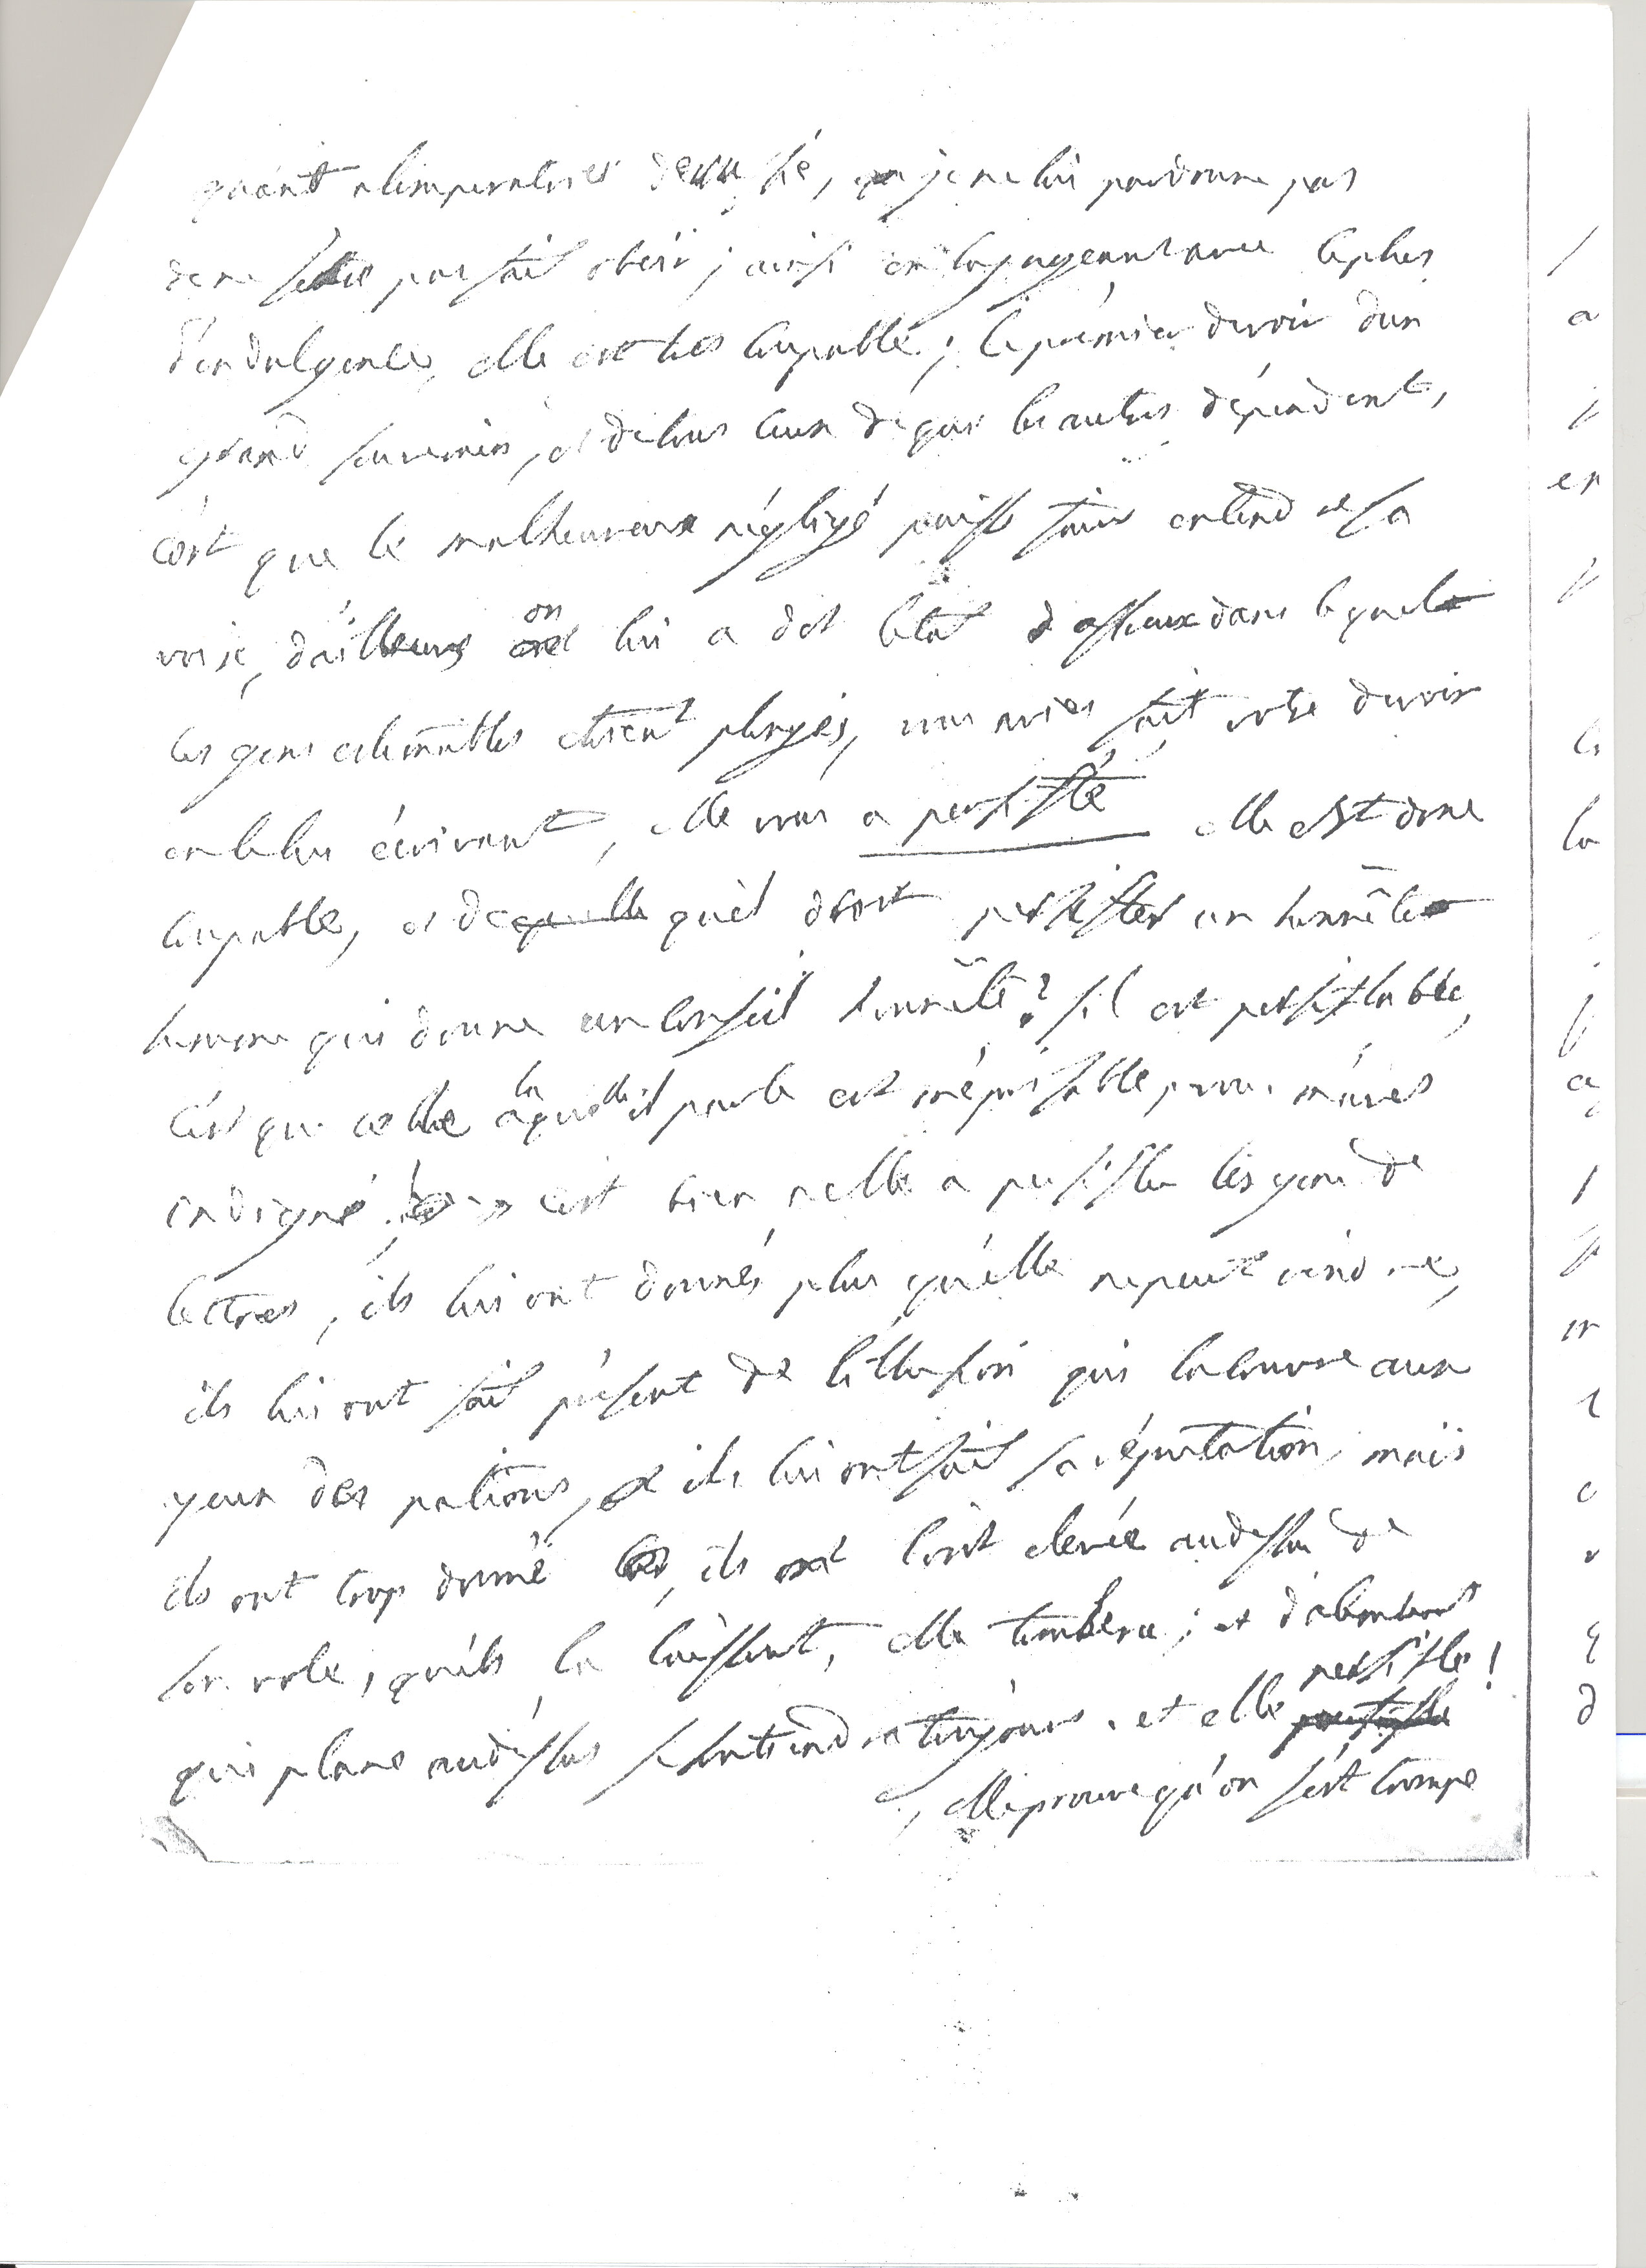 quant a limperatrice de russie, je ne lui pardonne pas
de ne setre pas fait obeir, ainsi en la jugeant avec le plus
d'indulgence, elle est tres coupable; le prémier devoir d'un
grand souverain, et de tous ceux de qui les autres dépendent,
c'est que le malheureux négligé puisse faire entendre sa
voix, d'ailleurs on lui a dit l'etat affreux dans lequel
les gens estimables etoient plongés, vous aviez fait votre devoir
en le lui écrivant, elle vous a persiflé elle est donc
coupable, et de quel droit persifler un honnête
homme qui donne un conseil honnête? s'il est persiflable,
c'est que celle a la quelle il parle est méprisable, vous m'avez
indigné, c'est bien a elle a persifler les gens de
lettres, ils lui ont donnés plus qu'elle ne peut rendre,
ils lui ont fait présent de l'illusion qui la couvre aux
yeux des nations, ils lui ont fait sa réputation, mais
ils ont trop donné, ils l'ont elevée au dessus de
son vole, qu'ils la laissent, elle tombera; et d'alembert
qui plane au dessus se soutiendra toujours. et elle persifle!
elle prouve qu'on s'est trompé
er
la